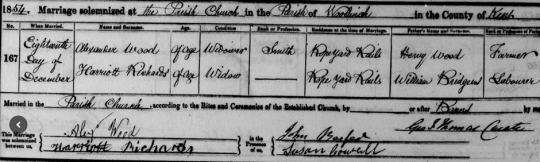 1854. Marriage solemnized at the Parish Church in the Parish of Woolwich in the County of Kent
No. When Married. Name and Surname. Age. Condition. Rank or Profession. Residence at the Time of Marriage. Father's Name and Surname. Rank or Profession of Father.
167 Eighteenth Day of December Alexander Wood of age Widower Smith Rope Yard Rails Henry Wood Farmer
Harriott Richards of age Widow Rope Yard Rails William Bridgens Labourer
Married in the Parish Church according to the Rites and Ceremonies of the Established Church, by or after Banns by me,
This Marriage was solemnized between us, Alex Wood Harriott Richards in the Presence of us, John Susan Thomas Curate